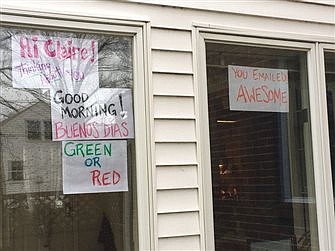 Hi Claire!
Thinking
of you
GOOD
MORNING!
BUENOS DIAS
GREEN
OR
RED
YOU EMAILED
AWESOME